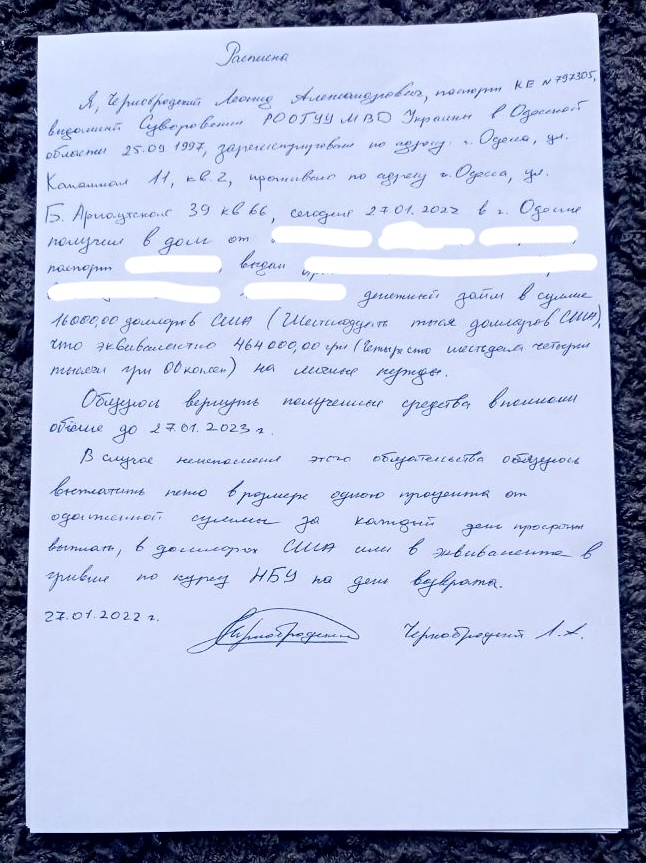 Расписка
Я, Чернобродский Леонид Александрович, паспорт КЕ N 797305,
виданный Суворовским РОСГУУ МВД Украины в Одесской
области 25.09 1997, зарегистрирован по адресу: г. Одесса, ул.
11, кв. 2, проживаю по адресу г. Одесса, ул.
Б. Арнаутская 39 кв 66, сегодня 27.01.2022 в г. Одессе
получил в долг от
паспорт , выдан
денежный займ в сумме
16000,00 долларов США (Шестнадцать тысяч долларов США),
что эквивалентно 464 000,00 грн (Четыреста шестьдесят четыре
тысячи грн 00 копеек) на личные нужды.
Обязуюсь вернуть полученные средства в полном
объеме до 27.01.2023 г.
В случае неисполнения этого обязательства обязуюсь
выплатить пеню в размере одного процента от
одолженной суммы за каждый день просрочки
выплаты, в долларах США или в эквиваленте в
гривне по курсу НБУ на день возврата.
27.01.2022 г. Чернобродский Чернобродский Л.А.